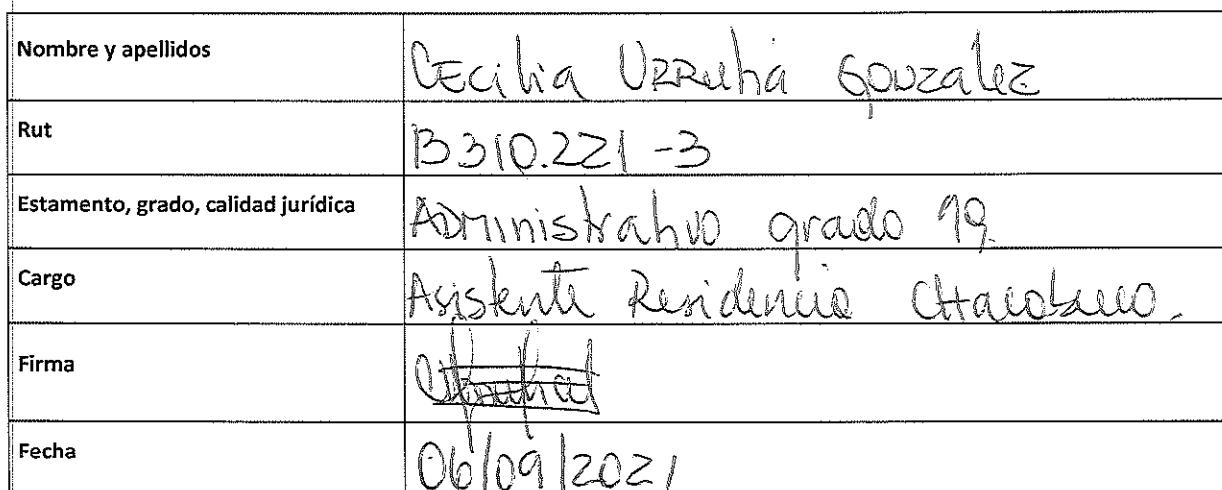 Nombre y apellidos CECilia URRutia Gonzalez
Rut 13310.221-3
Estamento, grado, calidad jurídica ADministrativo grado 19.
Cargo Asistente Residencia CHacabuco.
Firma
Fecha 06/09/2021